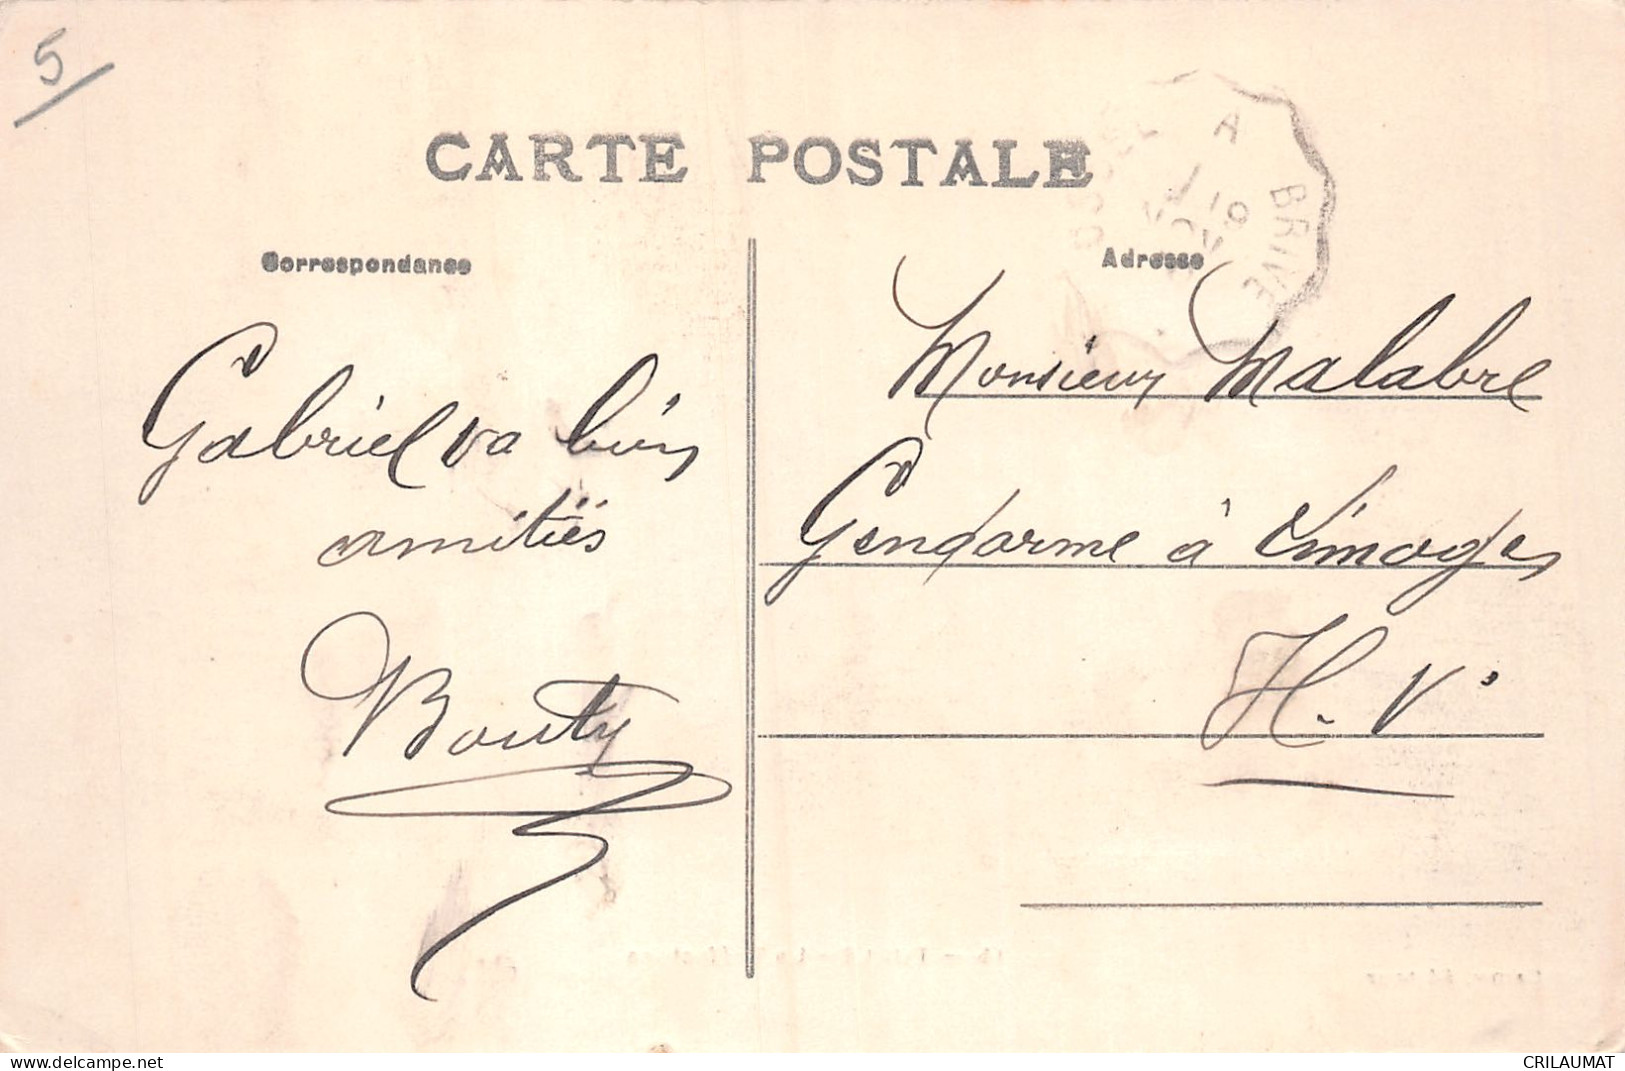 5
CARTE POSTALE
USSEL A BRIVE
Correspondance
Adresse
Gabriel va bien
amitiés
Bouty
Monsieur Malabre
Gendarme à Limoges
H. V.
www.delcampe.net
CRILAUMAT